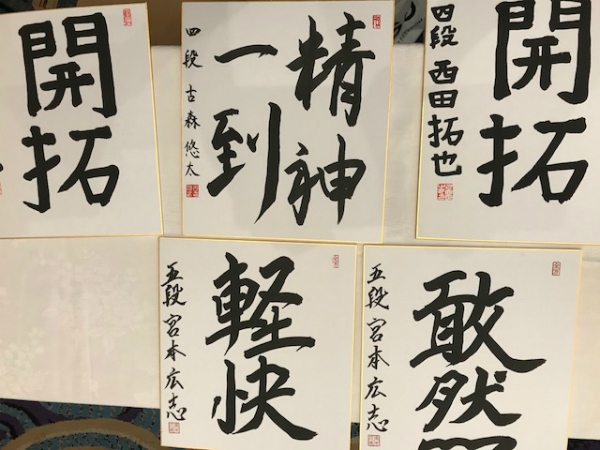 開拓
精神
一到
四段 古森悠太
開拓
四段 西田拓也
軽快
五段 宮本広志
敢然
五段 宮本広志